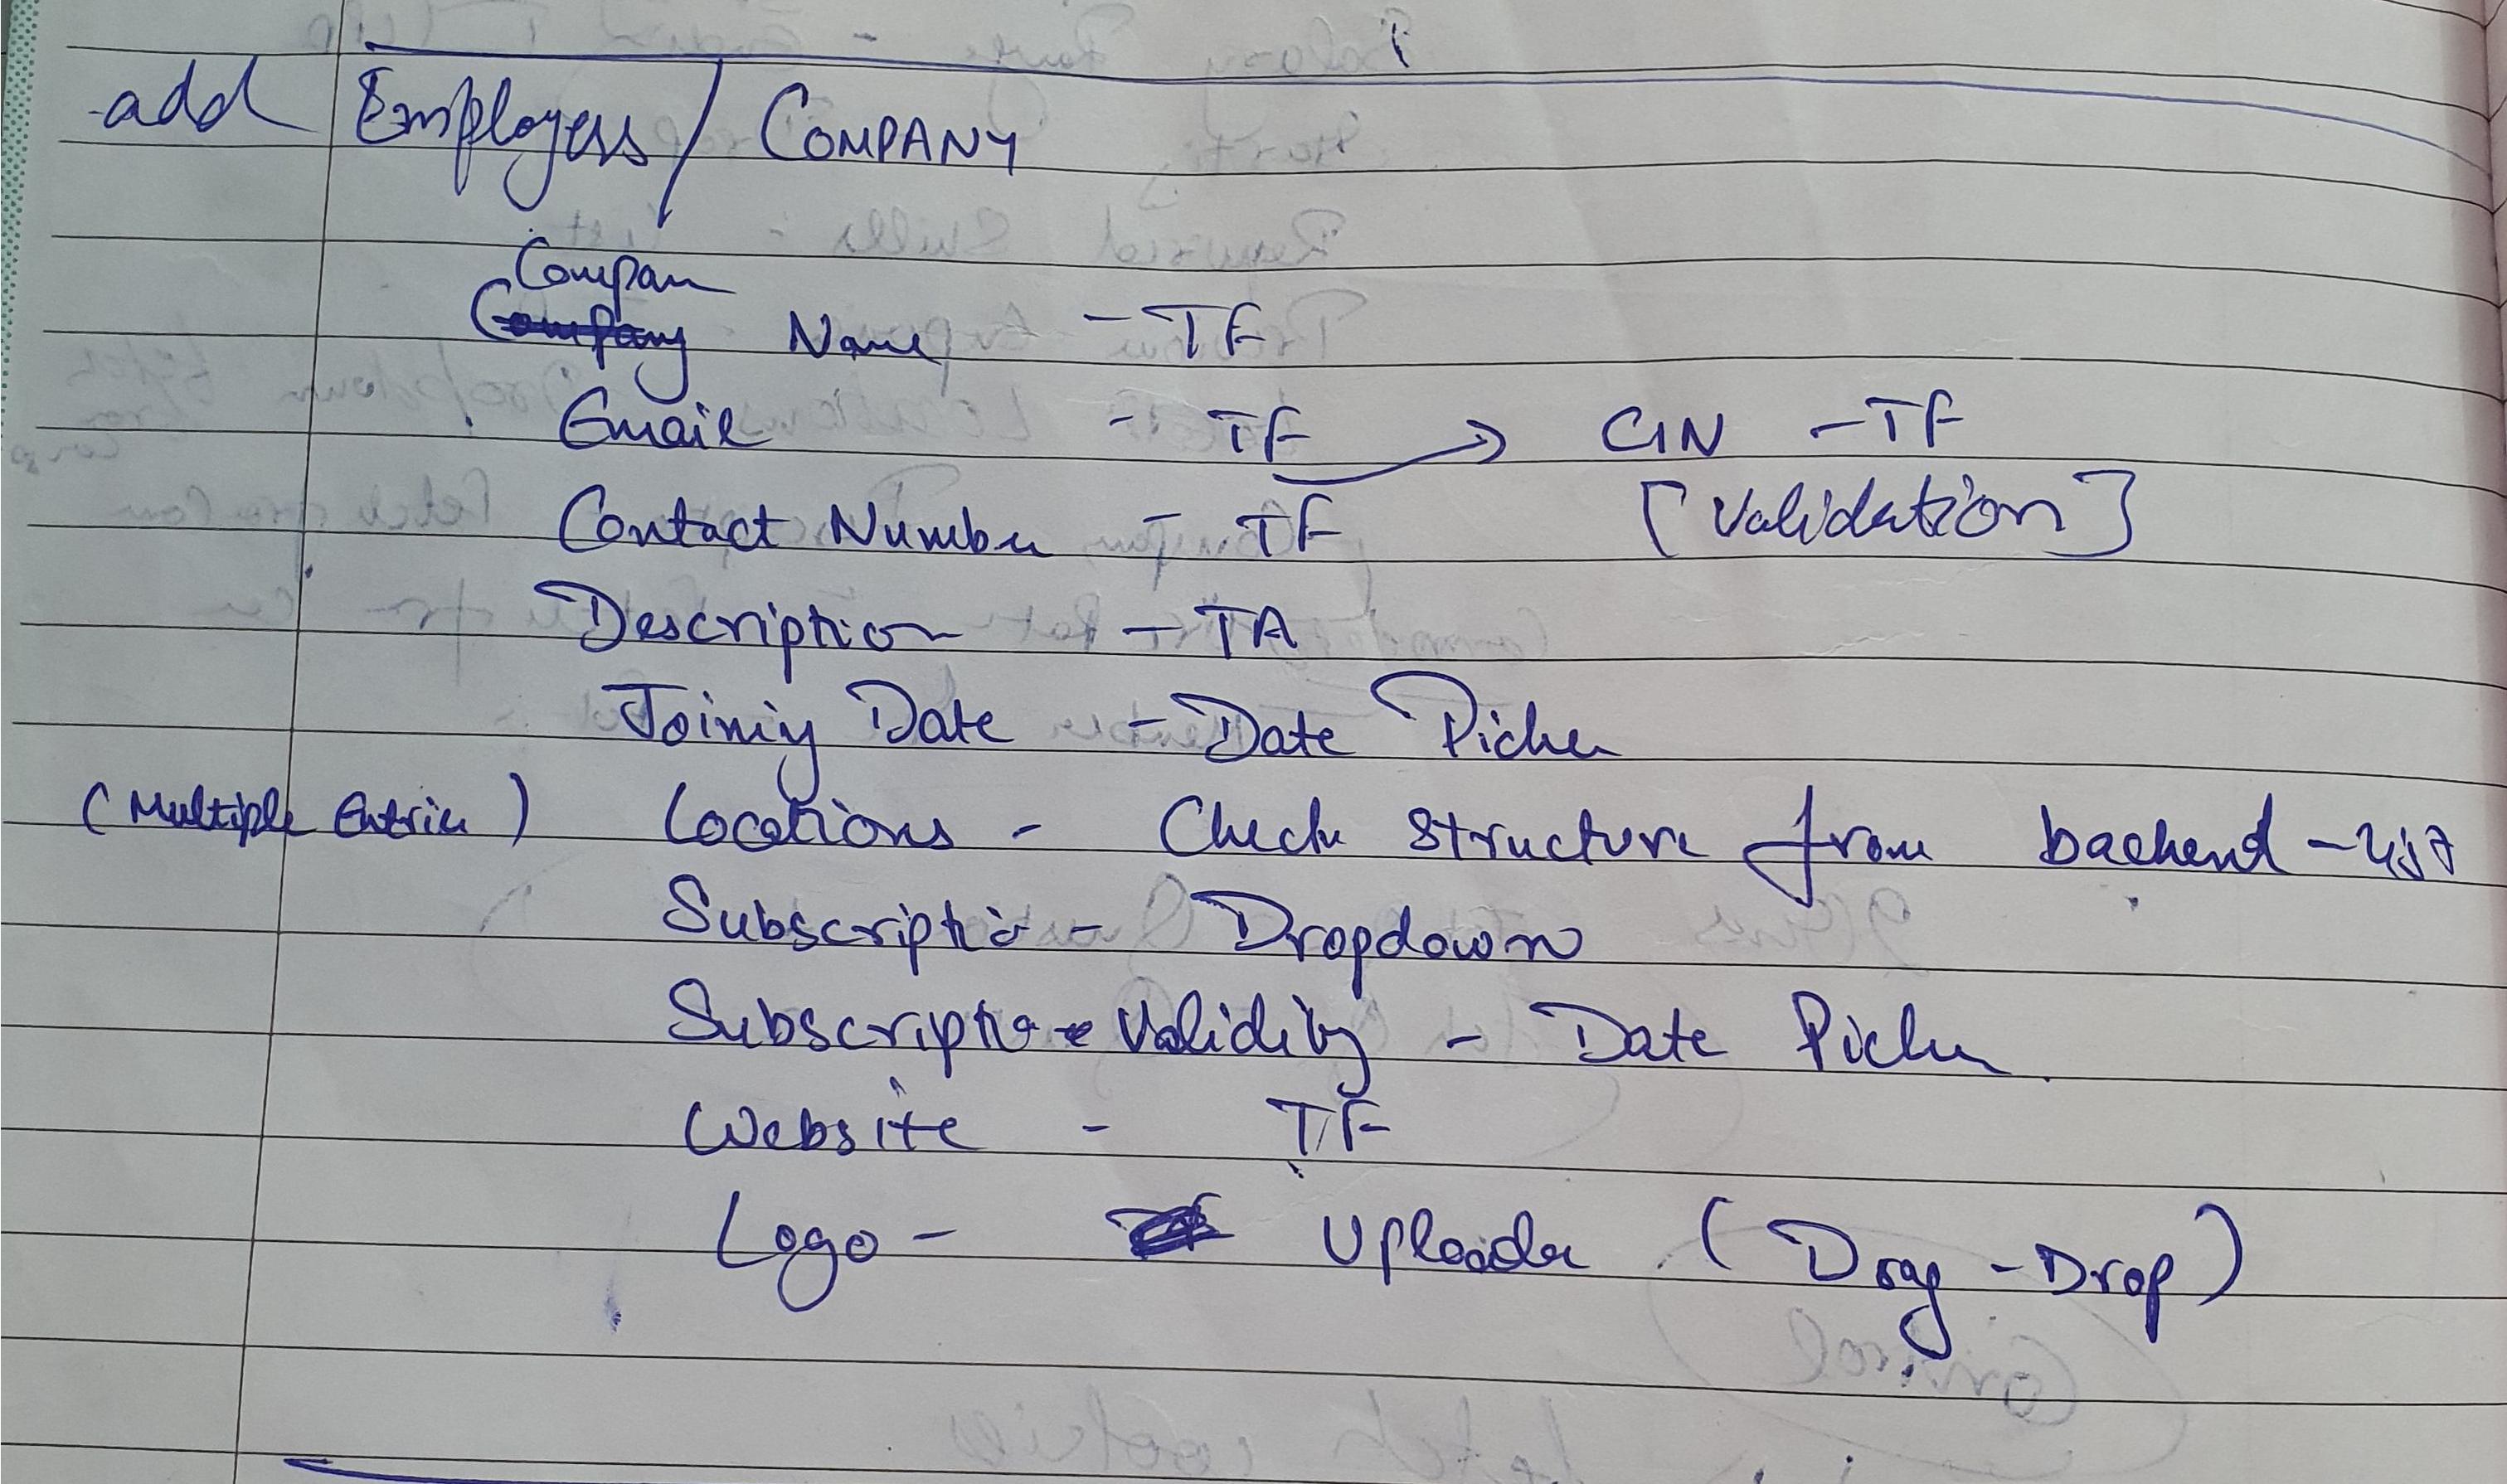 add Employers / COMPANY
Compan
Company Name - TF
Email - TF → CIN - TF
Contact Number - TF [Validation]
Description - TA
Joining Date - Date Picker
(Multiple Entries) Locations - Check Structure from backend - list
Subscription - Dropdown
Subscription Validity - Date Picker
Website - TF
Logo - Uploader (Drag - Drop)